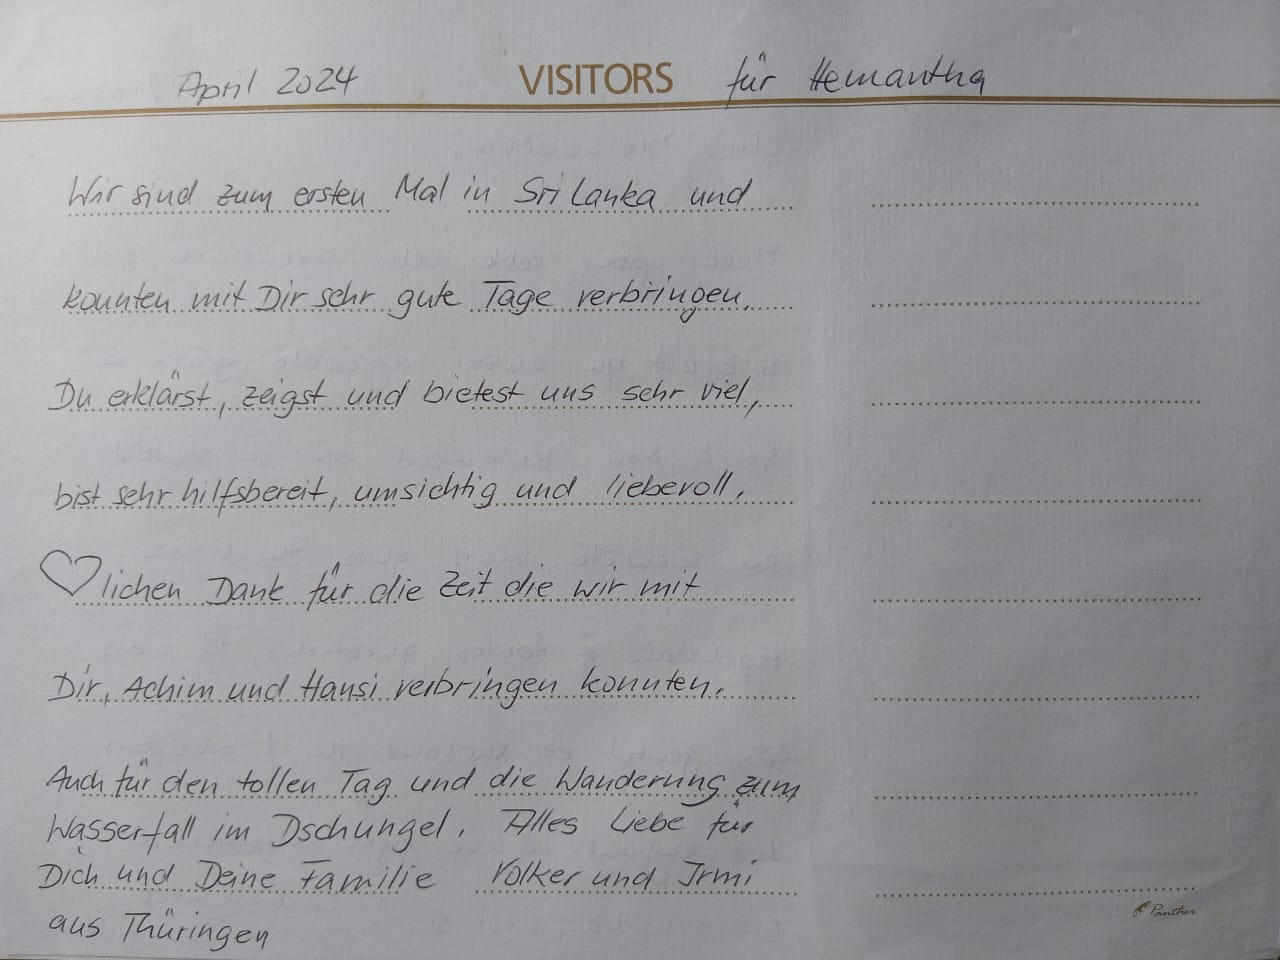 April 2024 VISITORS für Hemantha
Wir sind zum ersten Mal in Sri Lanka und
konnten mit Dir sehr gute Tage verbringen.
Du erklärst, zeigst und bietest uns sehr viel,
bist sehr hilfsbereit, umsichtig und liebevoll.
♡lichen Dank für die Zeit die wir mit
Dir, Achim und Hansi verbringen konnten.
Auch für den tollen Tag und die Wanderung zum
Wasserfall im Dschungel. Alles Liebe für
Dich und Deine Familie Volker und Irmi
aus Thüringen
Panther